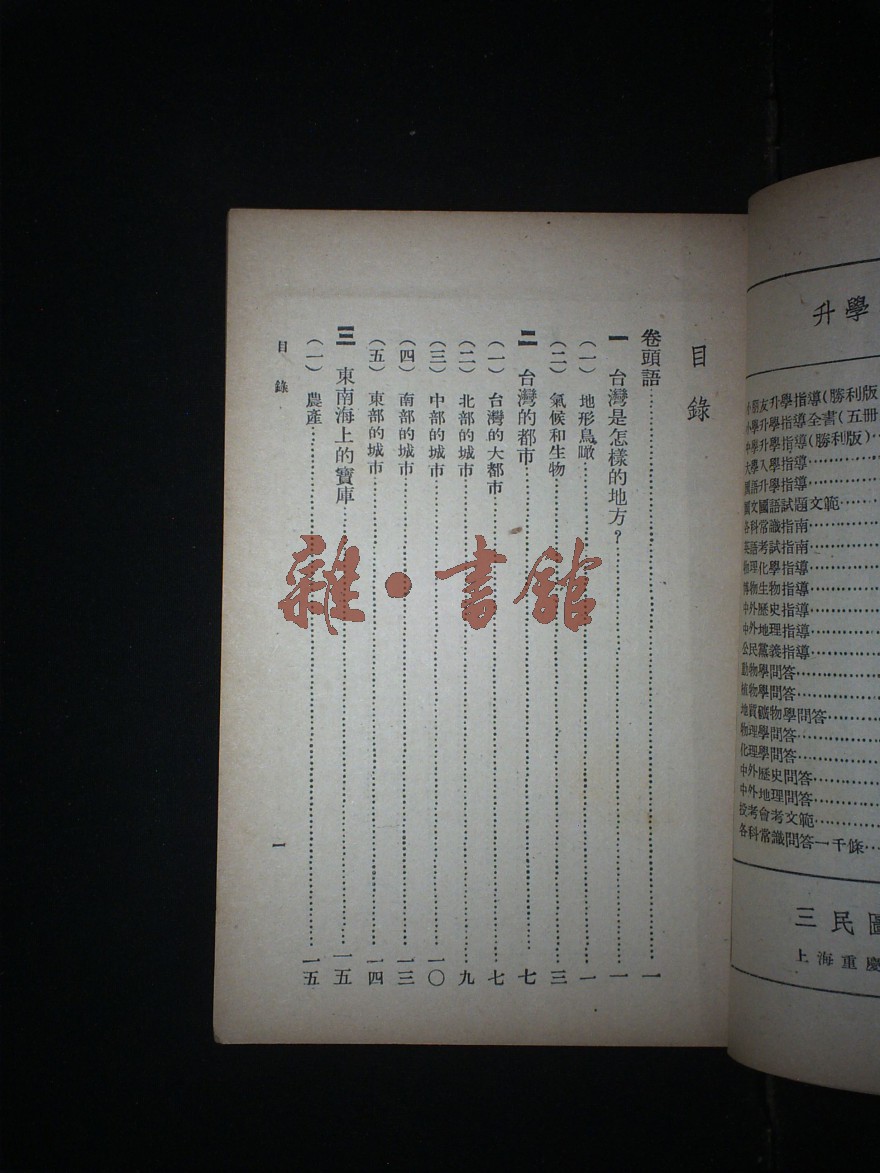 升學
小朋友升學指導(勝利版
小學升學指導全書(五冊
中學升學指導(勝利版)
大學入學指導
國語升學指導
國文國語試題文範
各科常識指南
英語考試指南
物理化學指導
博物生物指導
中外歷史指導
中外地理指導
公民黨義指導
動物學問答
植物學問答
地質礦物學問答
物理學問答
化理學問答
中外歷史問答
中外地理問答
投考會考文範
各科常識問答一千條
三民圖
上海重慶
目錄
卷頭語……一
一 台灣是怎樣的地方?……一
(一) 地形鳥瞰……一
(二) 氣候和生物……三
二 台灣的都市……七
(一) 台灣的大都市……七
(二) 北部的城市……九
(三) 中部的城市……一〇
(四) 南部的城市……一三
(五) 東部的城市……一四
三 東南海上的寶庫……一五
(一) 農產……一五
目錄
一
雜·書館